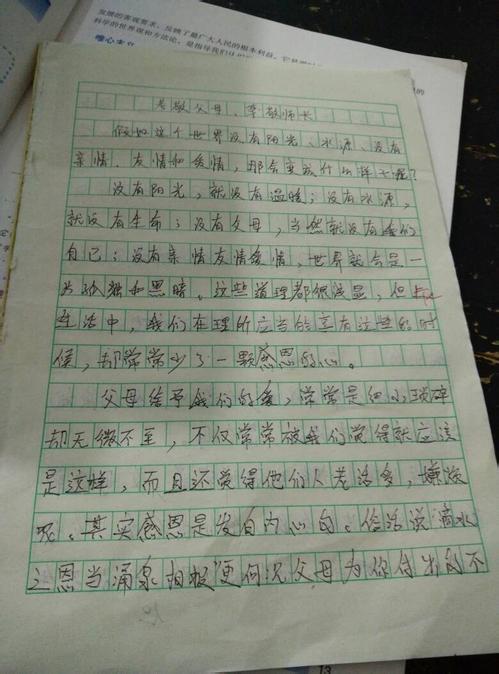 发展的客观要求，反映了最广大人民的根本利益，
科学的世界观和方法论，是指导我们
唯心主义
孝敬父母、尊敬师长
假如这个世界没有阳光、水源、没有
亲情、友情和爱情，那会变成什么样子呢？
没有阳光，就没有温暖；没有水源，
就没有生命；没有父母，当然就没有我们
自己；没有亲情友情爱情，世界就会是一
片孤独和黑暗。这些道理都很浅显，但
生活中，我们在理所应当的享有这些的时
候，却常常少了一颗感恩的心。
父母给予我们的爱，常常是细小琐碎
却无微不至，不仅常常被我们觉得就应该
是这样，而且还觉得他们人老话多，嫌烦
呢。其实感恩是发自内心的。俗话说"滴水
之恩当涌泉相报"更何况父母为你付出的不
13